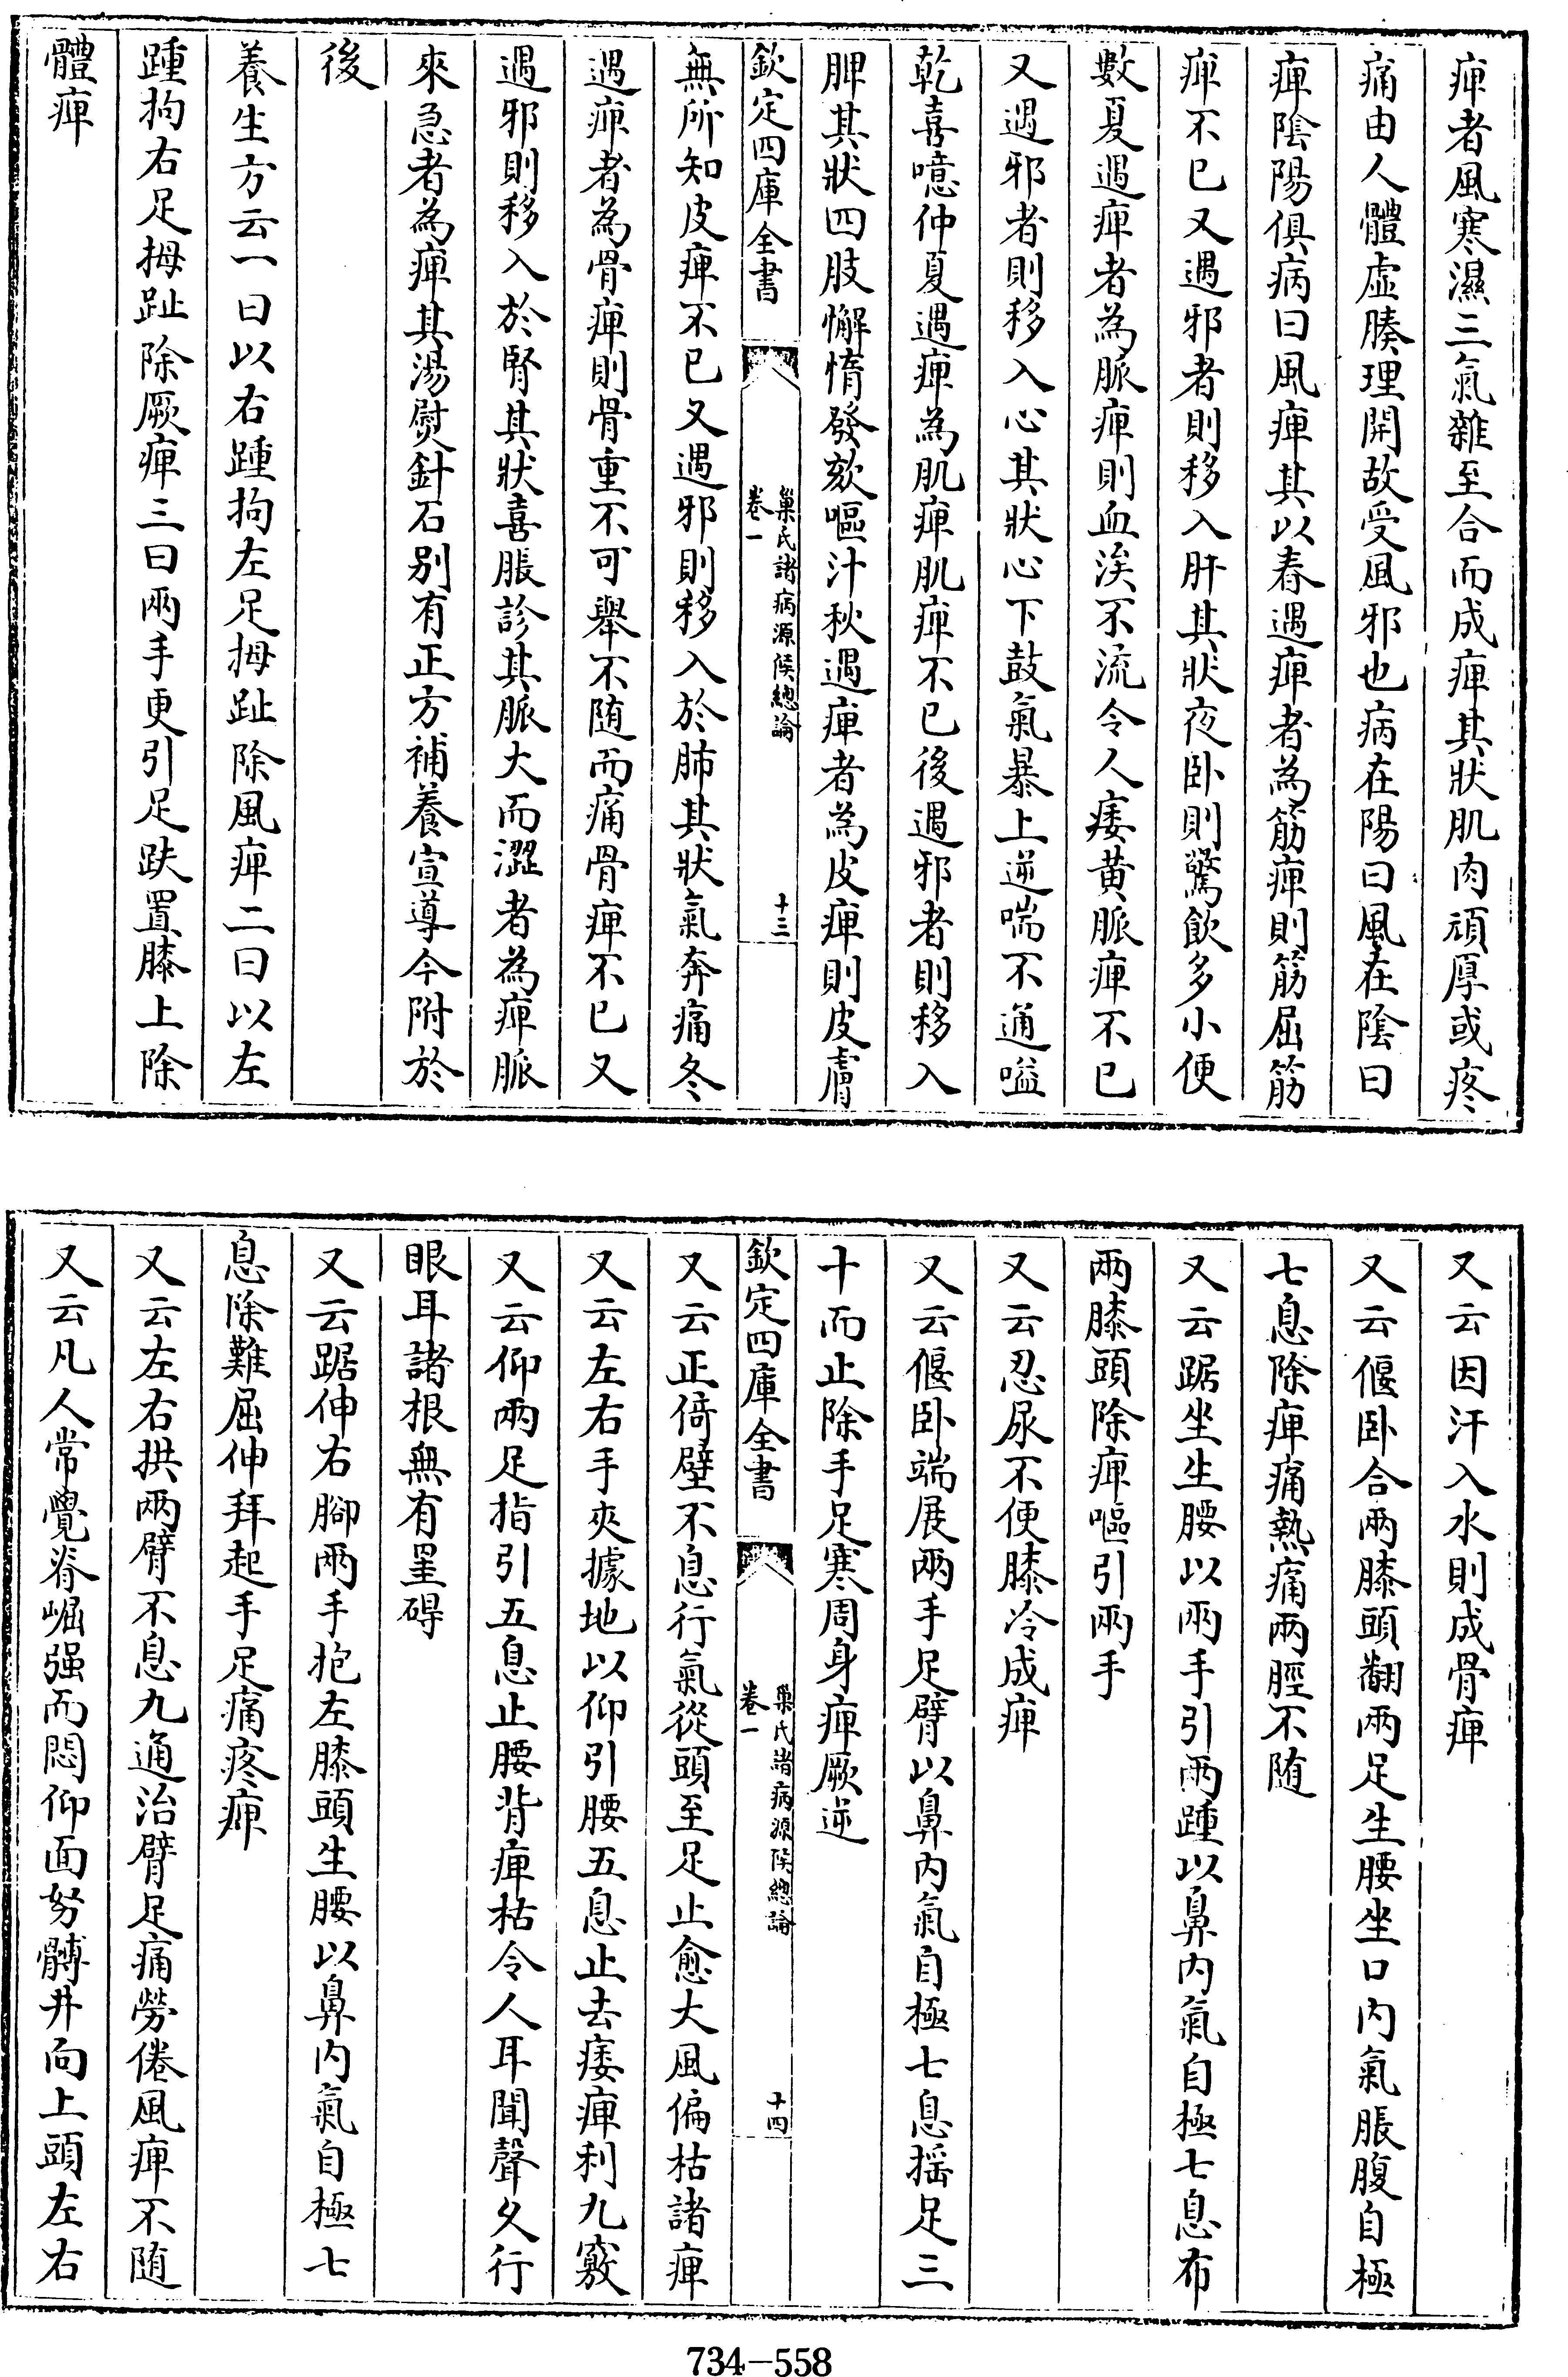 痺者風寒濕三氣雜至合而成痺其狀肌肉頑厚或疼
痛由人體虛腠理開故受風邪也病在陽曰風在陰曰
痺陰陽俱病曰風痺其以春遇痺者為筋痺則筋屈筋
痺不已又遇邪者則移入肝其狀夜卧則驚飲多小便
數夏遇痺者為脈痺則血㳮不流令人痿黄脈痺不已
又遇邪者則移入心其狀心下鼓氣暴上逆喘不通嗌
乾喜噫仲夏遇痺為肌痺肌痺不已後遇邪者則移入
脾其狀四肢懈惰發欬嘔汁秋遇痺者為皮痺則皮膚
欽定四庫全書
巢氏諸病源候總論
卷一
十三
無所知皮痺不已又遇邪則移入於肺其狀氣奔痛冬
遇痺者為骨痺則骨重不可舉不随而痛骨痺不已又
遇邪則移入於腎其狀喜脹診其脈大而澀者為痺脈
來急者為痺其湯熨針石别有正方補養宣導今附於
後
養生方云一曰以右踵拘左足拇趾除風痺二曰以左
踵拘右足拇趾除厥痺三曰兩手更引足趺置膝上除
體痺
又云因汗入水則成骨痺
又云偃卧合兩膝頭翻兩足生腰坐口内氣脹腹自極
七息除痺痛熱痛兩脛不随
又云踞坐生腰以兩手引兩踵以鼻内氣自極七息布
兩膝頭除痺嘔引兩手
又云忍尿不便膝冷成痺
又云偃卧端展兩手足臂以鼻内氣自極七息摇足三
十而止除手足寒周身痺厥逆
欽定四庫全書
巢氏諸病源候總論
卷一
十四
又云正倚壁不息行氣從頭至足止愈大風偏枯諸痺
又云左右手夾據地以仰引腰五息止去痿痺利九竅
又云仰兩足指引五息止腰背痺枯令人耳聞聲久行
眼耳諸根無有罣碍
又云踞伸右腳兩手抱左膝頭生腰以鼻内氣自極七
息除難屈伸拜起手足痛疼痺
又云左右拱兩臂不息九通治臂足痛勞倦風痺不随
又云凡人常覺脊崛强而悶仰面努髆井向上頭左右
734-558